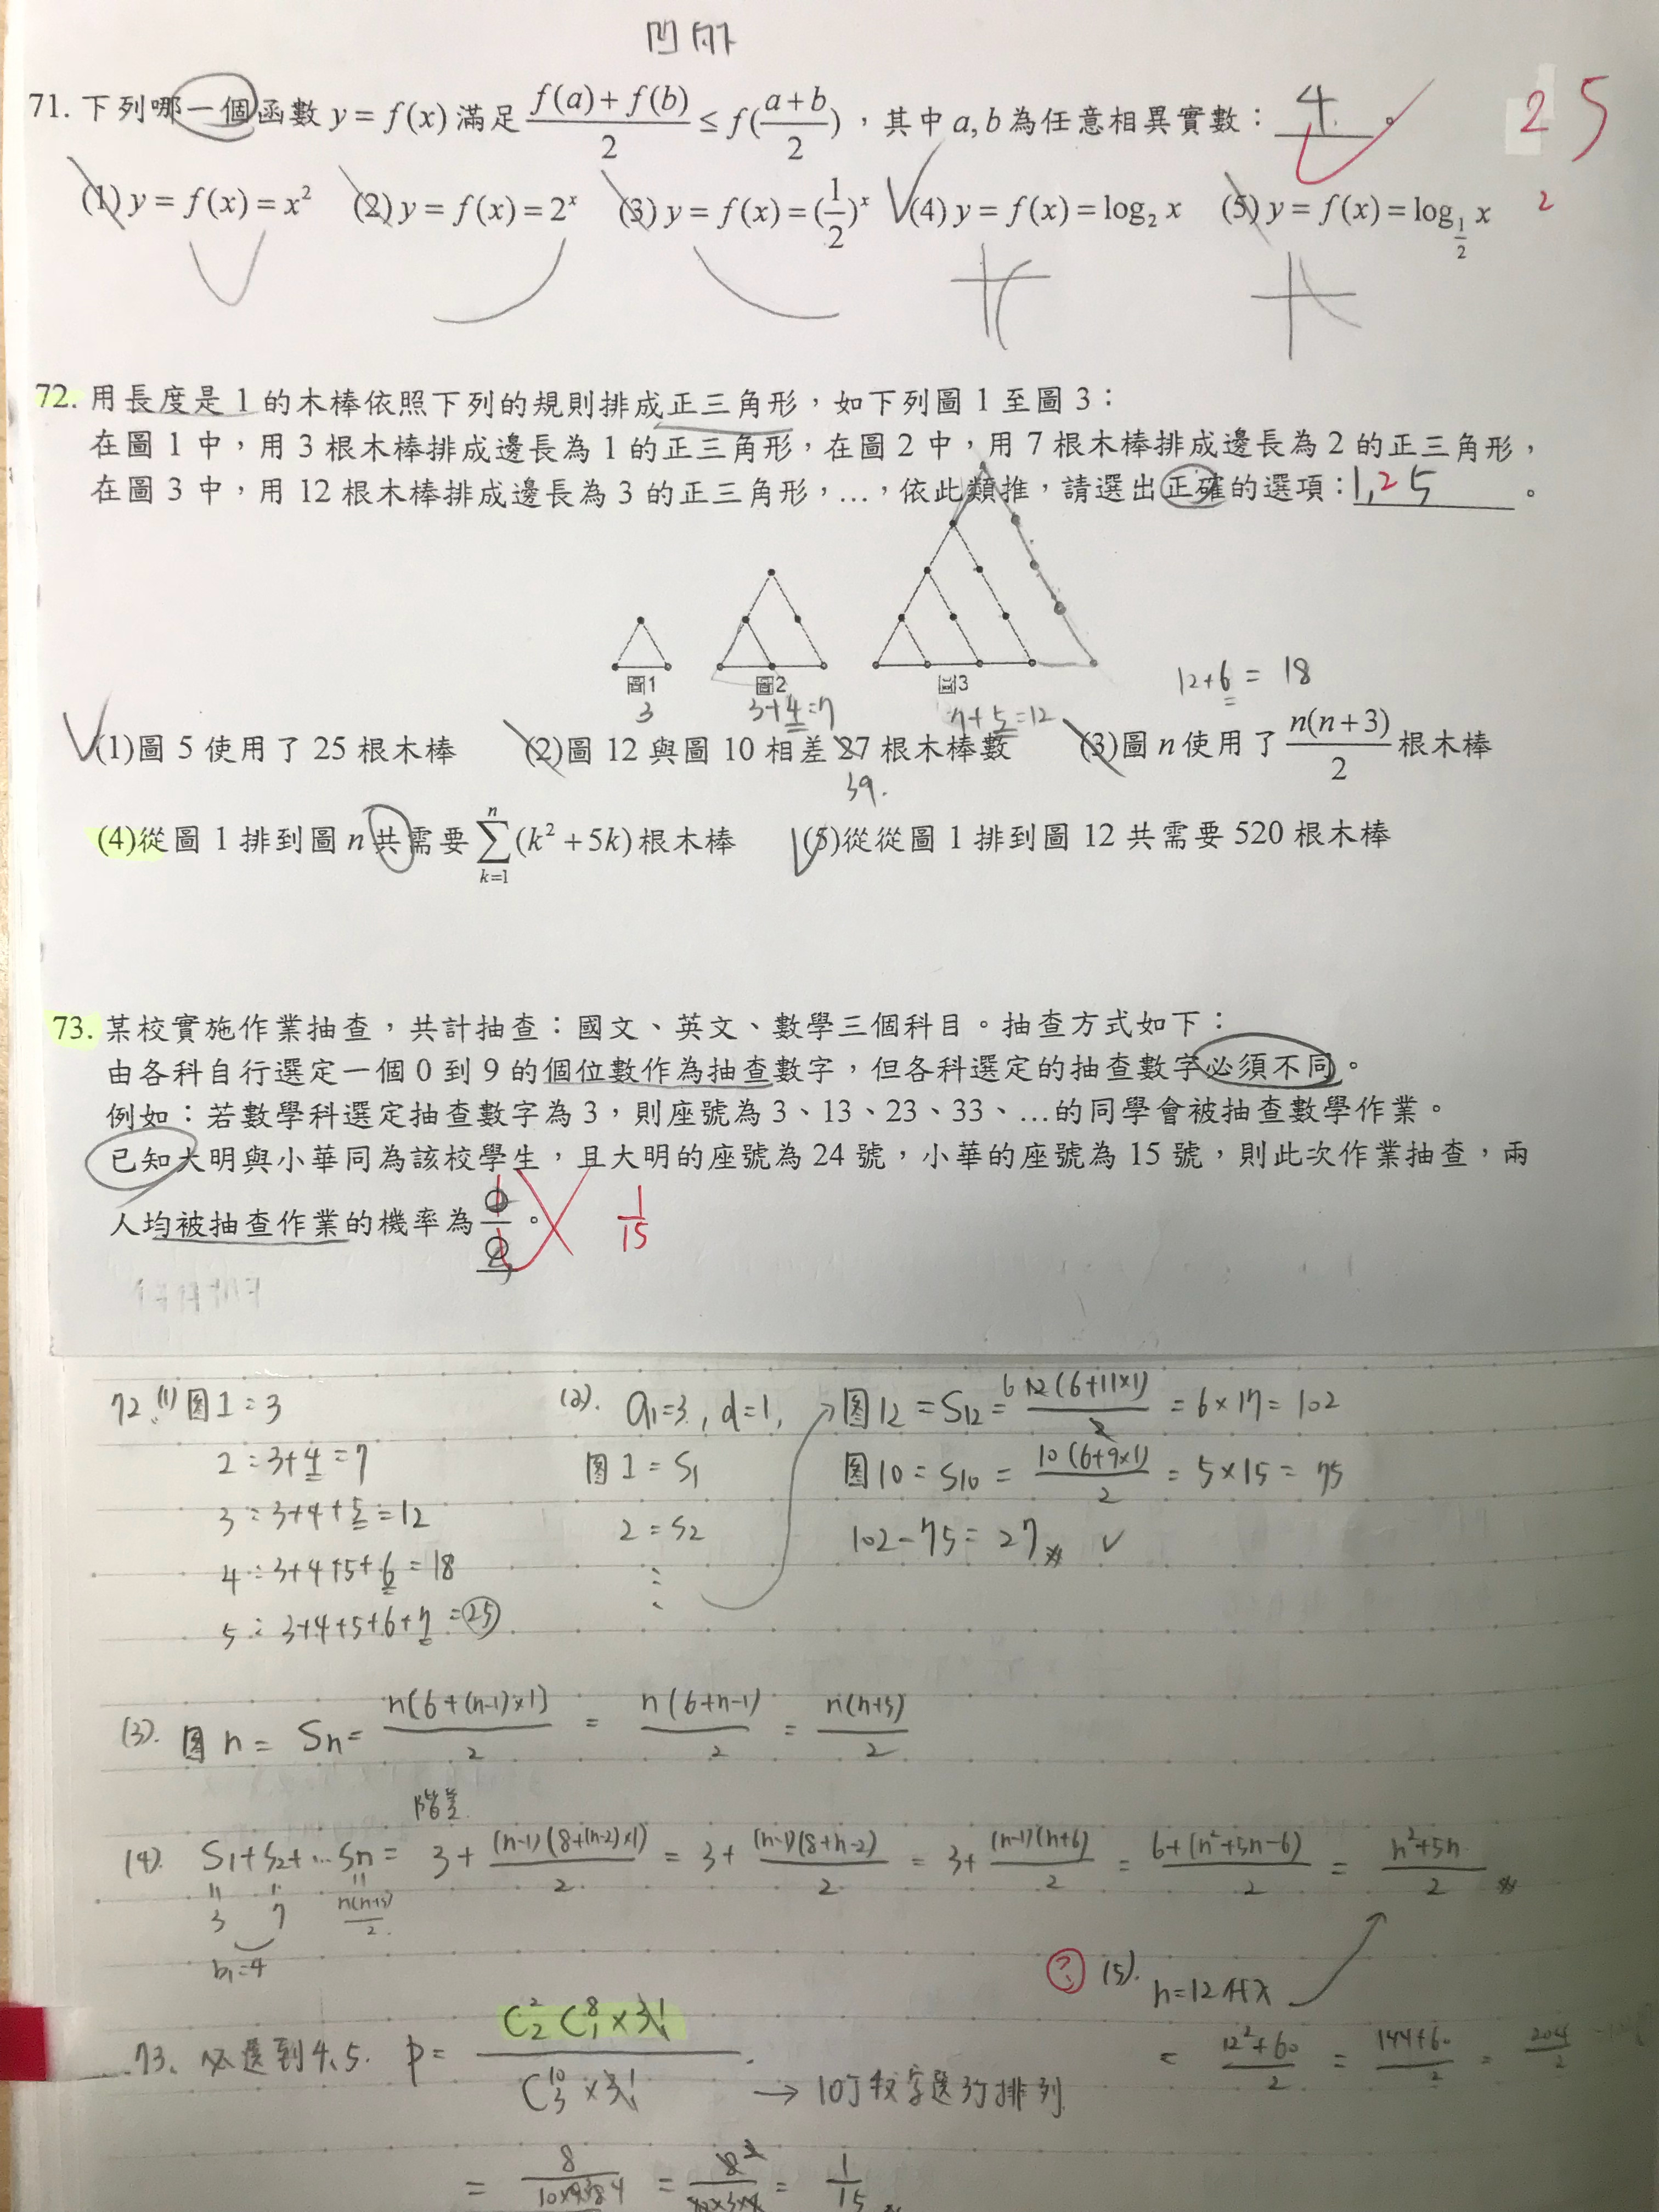 凹 向下
71. 下列哪一個函數 y = f(x) 滿足 \frac{f(a)+f(b)}{2} ≤ f(\frac{a+b}{2})，其中 a, b 為任意相異實數：4。 25
(1) y = f(x) = x² (2) y = f(x) = 2^x (3) y = f(x) = (\frac{1}{2})^x (4) y = f(x) = log₂ x (5) y = f(x) = log_{\frac{1}{2}} x 2
72. 用長度是 1 的木棒依照下列的規則排成正三角形，如下列圖 1 至圖 3：
在圖 1 中，用 3 根木棒排成邊長為 1 的正三角形，在圖 2 中，用 7 根木棒排成邊長為 2 的正三角形，
在圖 3 中，用 12 根木棒排成邊長為 3 的正三角形，…，依此類推，請選出正確的選項：1,2 5。
圖1 圖2 圖3 12+6 = 18
3 3+4=7 7+5=12
(1)圖 5 使用了 25 根木棒 (2)圖 12 與圖 10 相差 27 根木棒數 (3)圖 n 使用了 \frac{n(n+3)}{2} 根木棒
39.
(4)從圖 1 排到圖 n 共需要 \sum_{k=1}^{n}(k²+5k) 根木棒 (5)從從圖 1 排到圖 12 共需要 520 根木棒
73. 某校實施作業抽查，共計抽查：國文、英文、數學三個科目。抽查方式如下：
由各科自行選定一個 0 到 9 的個位數作為抽查數字，但各科選定的抽查數字必須不同。
例如：若數學科選定抽查數字為 3，則座號為 3、13、23、33、…的同學會被抽查數學作業。
已知大明與小華同為該校學生，且大明的座號為 24 號，小華的座號為 15 號，則此次作業抽查，兩
人均被抽查作業的機率為 。 \frac{1}{15}
72. (1) 図1 : 3 (2). a₁=3, d=1, 図12 = S₁₂ = \frac{12(6+11×1)}{2} = 6×17 = 102
2 : 3+4 = 7 図1 = S₁ 図10 = S₁₀ = \frac{10(6+9×1)}{2} = 5×15 = 75
3 : 3+4+5 = 12 2 = S₂ 102-75 = 27 ✓
4 : 3+4+5+6 = 18
5 : 3+4+5+6+7 = 25
(3). 図n = Sn = \frac{n(6+(n-1)×1)}{2} = \frac{n(6+n-1)}{2} = \frac{n(n+5)}{2}
階差
(4). S₁+S₂+…Sn = 3 + \frac{(n-1)(8+(n-2)×1)}{2} = 3+ \frac{(n-1)(8+n-2)}{2} = 3+ \frac{(n-1)(n+6)}{2} = \frac{6+(n²+5n-6)}{2} = \frac{n²+5n}{2}
3 7 \frac{n(n+5)}{2}
b₁=4
? (5). n=12代入
= \frac{12²+60}{2} = \frac{144+60}{2} = \frac{204}{2}
73. 必選到4、5. p = \frac{C^2_2 C^8_1 × 3!}{C^{10}_3 × 3!} → 10个数字選3个排列
= \frac{8}{} = = \frac{1}{15}